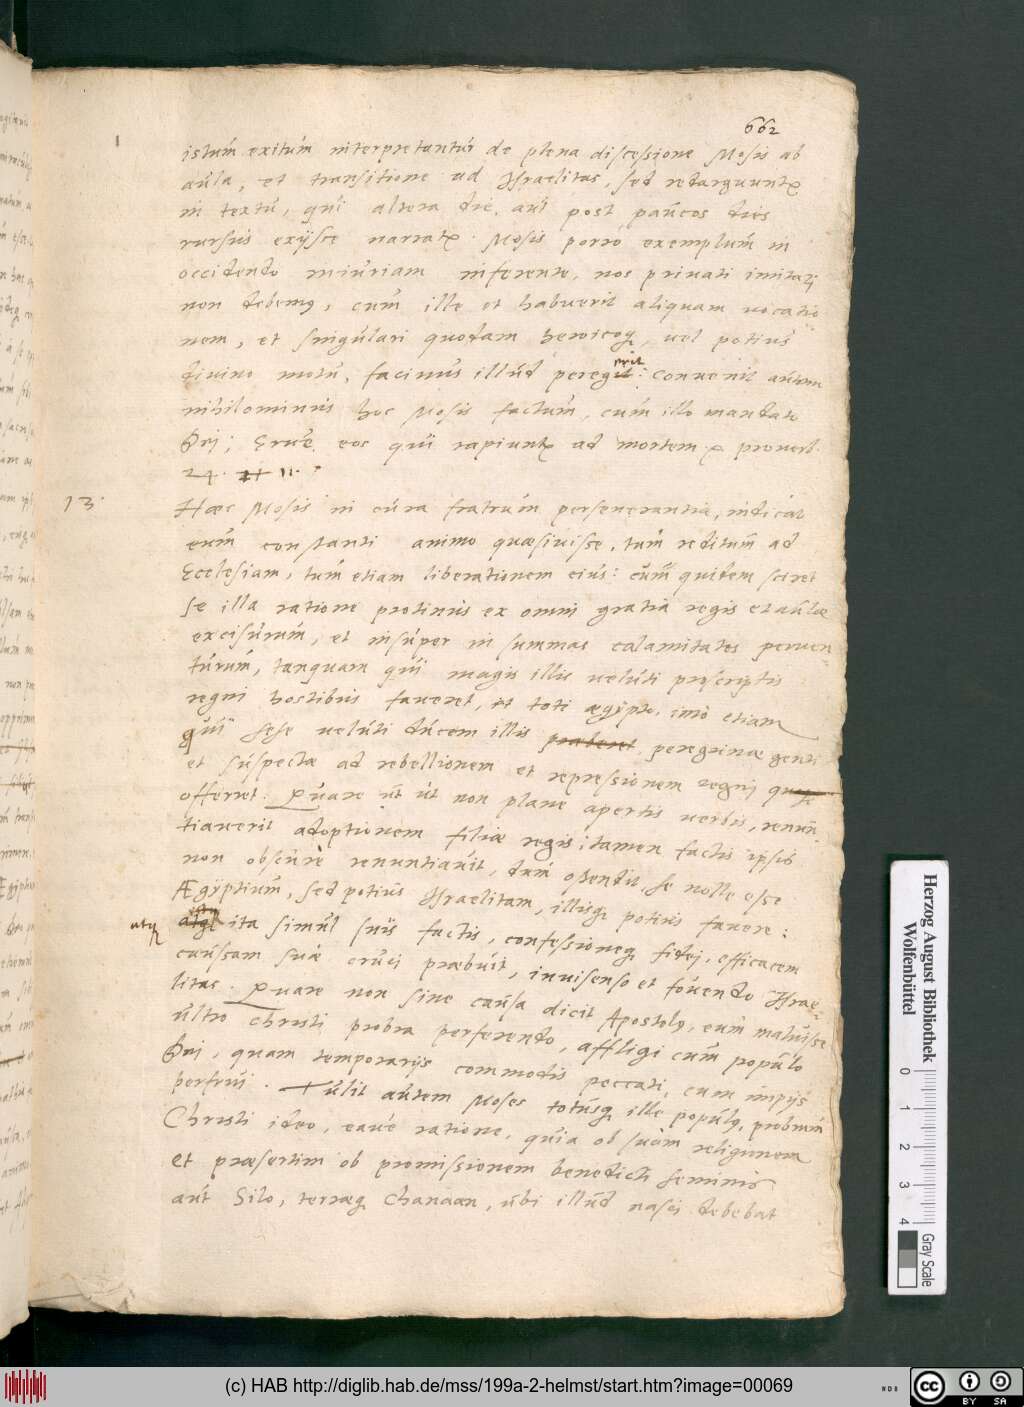 662
istum exitum interpretantur de plena discessione Mosis ab
aula, et transitione ad Israelitas, sed redarguuntr
in textu, qui altera die, aut post paucos dies
rursus exijsse narratr. Mosis porro exemplum in
occidendo iniuriam inferente, nos privati imitari
non debemus, cum ille et habuerit aliquam vocatio
nem, et singulari quodam heroicoq, vel potius
divino motu, facinus illud peregerit: convenit autem
nihilominus hoc Mosis factum, cum illo mandato
Dei; Erue eos qui rapiuntr ad mortem proverb.
24. 11.
13.
Haec Mosis in cura fratrum perseverantia, indicat
eum constanti animo quaesivisse, tum reditum ad
Ecclesiam, tum etiam liberationem eius: cum quidem sciret
se illa ratione protinus ex omni gratia regis et aulae
excisurum, et insuper in summas calamitates perven
turum, tanquam qui magis illis veluti proscriptis
regni hostibus faveret, toti aegypto, imo etiam
qui sese veluti ducem illis praeberet, peregrinae genti
et suspectae ad rebellionem et repressionem regni
offerret. Quare ut ut non plane apertis verbis, renun
tiaverit adoptionem filiae regis, tamen factis ipsis
non obscure renuntiavit, dum ostendit, se nolle esse
Ægyptium, sed potius Israelitam, illisq potius favere:
utq
ita simul suis factis, confessioneq fidei, efficacem
caussam suae cruci praebuit, invisendo et fovendo Israe-
litas. Quare non sine causa dicit Apostolus, eum maluisse
ultro Christi probra perferendo, affligi cum populo
Dei, quam temporarijs commodis peccati, cum impijs
perfrui. Tulit autem Moses totusq ille populus, probrum
Christi ideo, eave ratione, quia ob suam religionem
et praesertim ob promissionem benedicti seminis
aut Silo, terraeq Chanaan, ubi illud nasci debebat
Herzog August Bibliothek
Wolfenbüttel
0 1 2 3 4
Gray Scale
(c) HAB http://diglib.hab.de/mss/199a-2-helmst/start.htm?image=00069
cc BY SA